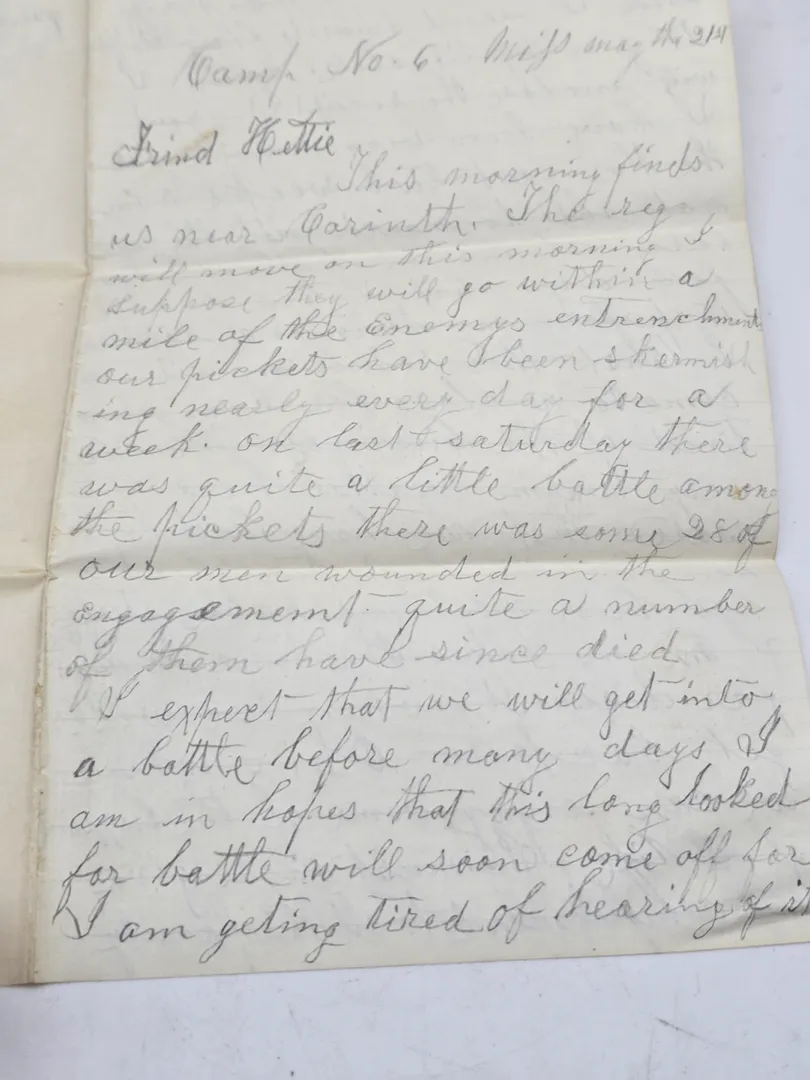 Camp No. 6. Miss may the 21st
Frind Hettie
This morning finds
us near Corinth. The reg
will move on this morning I
suppose they will go within a
mile of the Enemys entrenchments
our pickets have been skermish
-ing nearly every day for a
week. on last saturday there
was quite a little battle among
the pickets there was some 28 of
our men wounded in the
Engagememt quite a number
of them have since died
I expect that we will get into
a battle before many days I
am in hopes that this long looked
for battle will soon come off for
I am geting tired of hearing of it